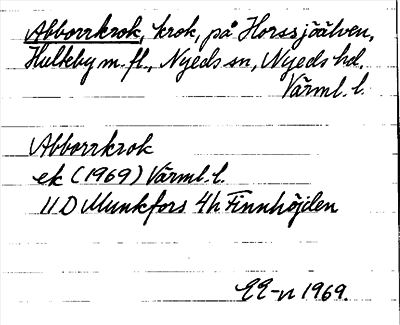 Abborrkrok, krok, på Horssjöälven,
Hulteby m. fl., Nyeds sn, Nyeds hd.
Värml. l.
Abborrkrok
ek (1969) Värml. l.
11D Munkfors 4h Finnhöjden
1969.